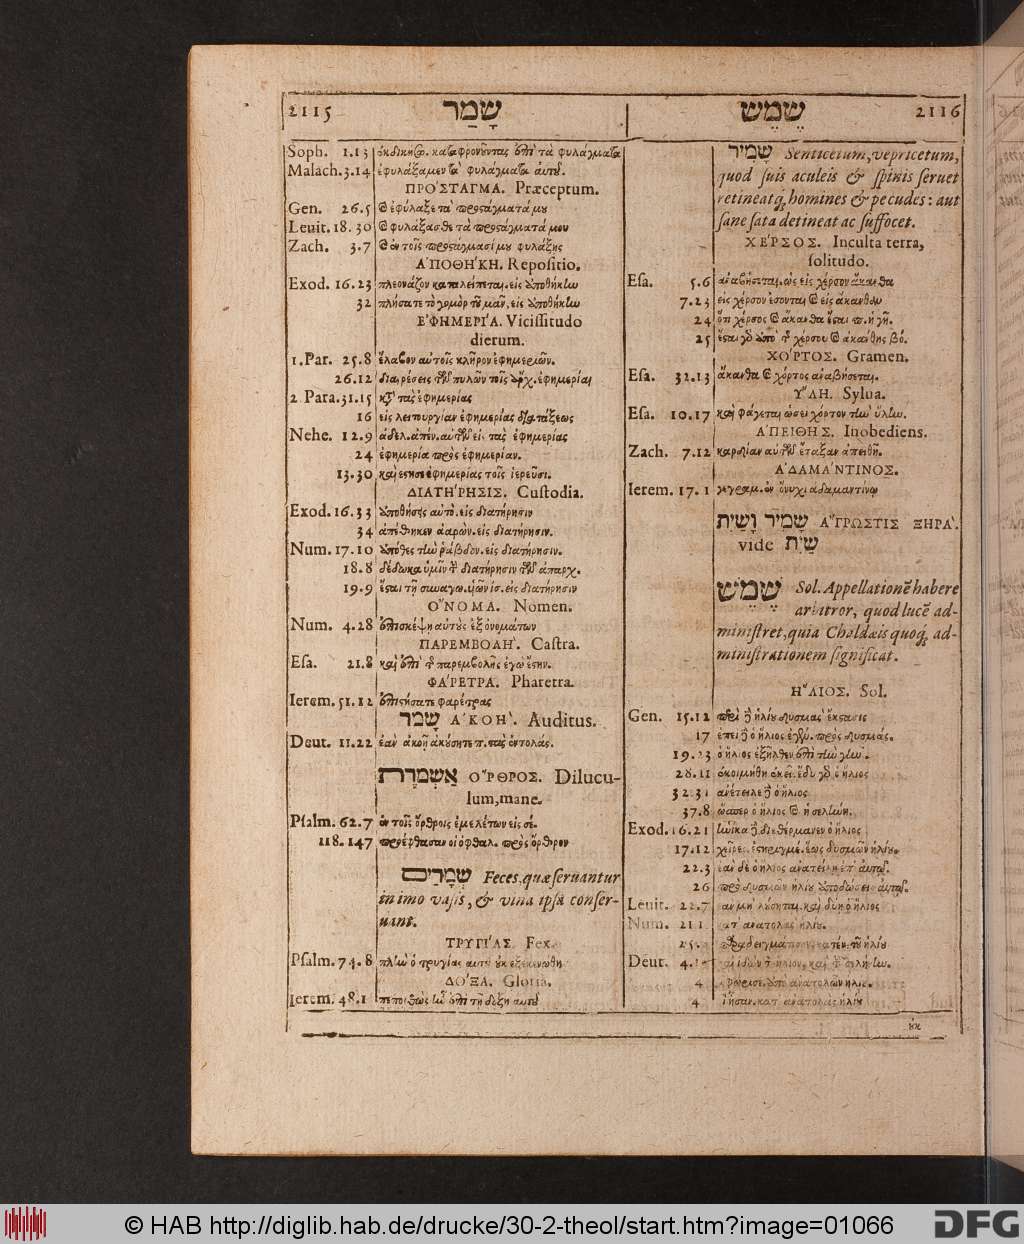 2115 שָׁמַר
Soph. 1.13 ἐκδικήσω. καταφρονοῦντας ἐπὶ τὰ φυλάγματα
Malach. 3.14 ἐφυλάξαμεν τὰ φυλάγματα αὐτοῦ.
ΠΡΟ´ΣΤΑΓΜΑ. Præceptum.
Gen. 26.5 καὶ ἐφύλαξε τὰ προςάγματά μου
Leuit. 18.30 καὶ φυλάξασθε τὰ προςάγματά μου
Zach. 3.7 καὶ ἐν τοῖς προςάγμασί μου φυλάξῃς
Α᾿ΠΟΘΗ´ΚΗ. Repositio.
Exod. 16.23 πλεονάζον καταλείπεται. εἰς ὑποθήκην
32 πλήσατε τὸ γομὸρ τοῦ μαν, εἰς ὑποθήκην
Ε᾿ΦΗΜΕΡΙ´Α. Vicissitudo
dierum.
1. Par. 25.8 ἔλαβον αὐτοῖς κλῆρον ἐφημεριῶν.
26.12 διαιρέσεις τῶν πυλῶν τοῖς ἄρχ. ἐφημερίαι
2 Para. 31.15 κατὰ τὰς ἐφημερίας
16 εἰς λειτουργίαν ἐφημερίας διατάξεως
Nehe. 12.9 ἀδελ. ἀπέν. αὐτῶν εἰς τὰς ἐφημερίας
24 ἐφημερία πρὸς ἐφημερίαν.
13.30 καὶ ἔςησα ἐφημερίας τοῖς ἱερεῦσι.
ΔΙΑΤΗ´ΡΗΣΙΣ. Custodia.
Exod. 16.33 ὑποθήσῃς αὐτὸ. εἰς διατήρησιν
34 ἀπέθηκεν ἀαρὼν. εἰς διατήρησιν.
Num. 17.10 ὑπόθες τὴν ῥάβδον. εἰς διατήρησιν.
18.8 δέδωκα ὑμῖν τὴν διατήρησιν τῶν ἀπαρχ.
19.9 ἔςαι τῇ συναγω. ὑῶν ἰσ. εἰς διατήρησιν
Ο῎ΝΟΜΑ. Nomen.
Num. 4.28 ἐπισκέψῃ αὐτοὺς ἐξ ὀνομάτων
ΠΑΡΕΜΒΟΛΗ`. Castra.
Esa. 21.8 καὶ ἐπὶ τῆς παρεμβολῆς ἐγὼ ἔςην.
ΦΑΡΕ´ΤΡΑ. Pharetra.
Ierem. 51.12 ἐπιςήσατε φαρέτρας
שָׁמַר Α᾿ΚΟΗ`. Auditus.
Deut. 11.22 ἐὰν ἀκοῇ ἀκούσητε π. τὰς ἐντολάς.
אַשְׁמֻרֹת Ο῎ΡΘΡΟΣ. Dilucu-
lum, mane.
Psalm. 62.7 ἐν τοῖς ὄρθροις ἐμελέτων εἰς σέ.
118.147 προέφθασαν οἱ ὀφθαλ. πρὸς ὄρθρον
שְׁמָרִים Feces, quæ seruantur
in imo vasis, & vina ipsa conser-
uant.
ΤΡΥΓΙ´ΑΣ Fex.
Psalm. 74.8 πλὴν ὁ τρυγίας αὐτοῦ οὐκ ἐξεκενώθη
ΔΟ´ΞΑ. Gloria.
Ierem. 48.1 πεποιθὼς ἦν ἐπὶ τῇ δόξῃ αὐτοῦ
שֶׁמֶשׁ 2116
שָׁמִיר Senticetum, vepricetum,
quod suis aculeis & spinis seruet
retineatq́, homines & pecudes: aut
sane sata detineat ac suffocet.
ΧΕ´ΡΣΟΣ. Inculta terra,
solitudo.
Esa. 5.6 ἀναβήσεται. ὡς εἰς χέρσον ἄκανθα
7.23 εἰς χέρσον ἔσονται καὶ εἰς ἄκανθαν
24 ὅτι χέρσος καὶ ἄκανθα ἔςαι π. ἡ γῆ.
25 ἔςαι γὰρ ἀπὸ τῆς χέρσου καὶ ἀκάνθης βό.
ΧΟ´ΡΤΟΣ. Gramen.
Esa. 32.13 ἄκανθα καὶ χόρτος ἀναβήσεται.
Υ῞ΛΗ. Sylua.
Esa. 10.17 καὶ φάγεται ὡσεὶ χόρτον τὴν ὕλην.
Α᾿ΠΕΙΘΗΣ. Inobediens.
Zach. 7.12 καρδίαν αὐτῶν ἔταξαν ἀπειθῆ.
Α᾿ΔΑΜΑ´ΝΤΙΝΟΣ.
Ierem. 17.1 γέγραμ. ἐν ὄνυχι ἀδαμαντίνῳ
שָׁמִיר וָשַׁיִת Α῎ΓΡΩΣΤΙΣ ΞΗΡΑ`.
vide שַׁיִת
שֶׁמֶשׁ Sol. Appellationē habere
arbitror, quod lucē ad-
ministret, quia Chaldæis quoq́, ad-
ministrationem significat.
Η῞ΛΙΟΣ. Sol.
Gen. 15.12 περὶ δὲ ἡλίου δυσμὰς ἔκςασις
17 ἐπεὶ δὲ ὁ ἥλιος ἐγέν. πρὸς δυσμάς.
19.23 ὁ ἥλιος ἐξῆλθεν ἐπὶ τὴν γῆν.
28.11 ἐκοιμήθη ἐκεῖ. ἔδυ γὰρ ὁ ἥλιος
32.31 ἀνέτειλε δὲ ὁ ἥλιος
37.8 ὥσπερ ὁ ἥλιος καὶ ἡ σελήνη.
Exod. 16.21 ἡνίκα δὲ διεθέρμανεν ὁ ἥλιος
17.12 χεῖρες ἐςηριγμέ. ἕως δυσμῶν ἡλίου.
22.3 ἐὰν δὲ ὁ ἥλιος ἀνατείλῃ ἐπ' αὐτῷ.
26 πρὸ δυσμῶν ἡλίου ἀποδώσεις αὐτῷ.
Leuit. 22.7 καὶ δύῃ ὁ ἥλιος
Num. 21.1 κατ' ἀνατολὰς ἡλίου.
25. παραδειγμάτισον κατέν. τοῦ ἡλίου
Deut. 4. ἰδὼν τὸν ἥλιον, καὶ τὴν σελήνην.
4 ἀφώρισε. ἀπὸ ἀνατολῶν ἡλίου.
4 ἦσαν. κατ' ἀνατολὰς ἡλίου
ἐκ
© HAB http://diglib.hab.de/drucke/30-2-theol/start.htm?image=01066
DFG